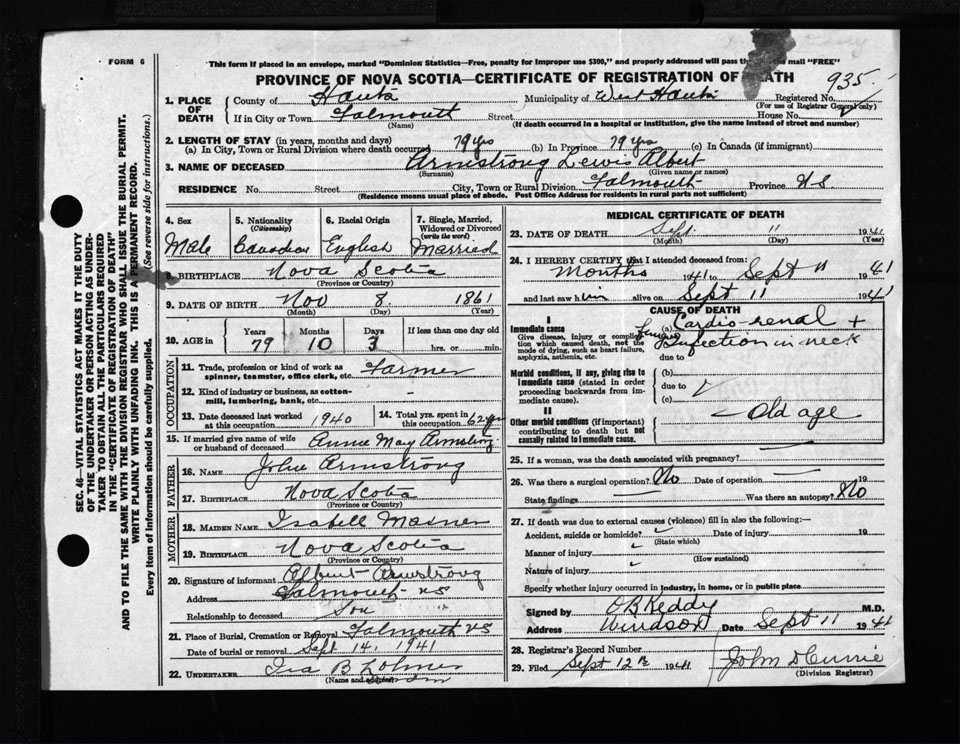 FORM 6
This form if placed in an envelope, marked "Dominion Statistics—Free, penalty for improper use $300," and properly addressed will pass the mail "FREE"
PROVINCE OF NOVA SCOTIA—CERTIFICATE OF REGISTRATION OF DEATH
935
1. PLACE OF DEATH County of Hants Municipality of West Hants Registered No.
(For use of Registrar General only)
If in City or Town Falmouth Street House No.
(Name) (If death occurred in a hospital or institution, give the name instead of street and number)
2. LENGTH OF STAY (in years, months and days)
(a) In City, Town or Rural Division where death occurred 79 yrs (b) In Province 79 yrs (c) In Canada (if immigrant)
3. NAME OF DECEASED Armstrong Lewis Albert
(Surname) (Given name or names)
RESIDENCE No. Street City, Town or Rural Division Falmouth Province N.S.
(Residence means usual place of abode. Post Office Address for residents in rural parts not sufficient)
SEC. 46—VITAL STATISTICS ACT MAKES IT THE DUTY
OF THE UNDERTAKER OR PERSON ACTING AS UNDER-
TAKER TO OBTAIN ALL THE PARTICULARS REQUIRED
IN THE "CERTIFICATE OF REGISTRATION OF DEATH"
AND TO FILE THE SAME WITH THE DIVISION REGISTRAR WHO SHALL ISSUE THE BURIAL PERMIT.
WRITE PLAINLY WITH UNFADING INK. THIS IS A PERMANENT RECORD.
Every item of Information should be carefully supplied. (See reverse side for instructions.)
4. Sex 5. Nationality (Citizenship) 6. Racial Origin 7. Single, Married, Widowed or Divorced (write the word)
Male Canadian English Married
8. BIRTHPLACE Nova Scotia
(Province or Country)
9. DATE OF BIRTH Nov 8 1861
(Month) (Day) (Year)
10. AGE in Years Months Days If less than one day old
79 10 3 hrs. or min.
OCCUPATION
11. Trade, profession or kind of work as spinner, teamster, office clerk, etc. Farmer
12. Kind of industry or business, as cotton-mill, lumbering, bank, etc. -
13. Date deceased last worked at this occupation 1940 14. Total yrs. spent in this occupation 62 yrs
15. If married give name of wife or husband of deceased Annie May Armstrong
FATHER
16. NAME John Armstrong
17. BIRTHPLACE Nova Scotia
(Province or Country)
MOTHER
18. MAIDEN NAME Isabell
19. BIRTHPLACE Nova Scotia
(Province or Country)
20. Signature of informant Albert Armstrong
Address Falmouth NS
Relationship to deceased Son
21. Place of Burial, Cremation or Removal Falmouth NS
Date of burial or removal Sept 14, 1941
22. UNDERTAKER Ira B
(Name and address)
MEDICAL CERTIFICATE OF DEATH
23. DATE OF DEATH Sept. 11 1941
(Month) (Day) (Year)
24. I HEREBY CERTIFY that I attended deceased from:
Months 1941 to Sept 11 1941
and last saw him alive on Sept 11 1941
CAUSE OF DEATH
I
Immediate cause (a) Cardio-renal +
Give disease, injury or complication which caused death, not the mode of dying, such as heart failure, asphyxia, asthenia, etc.
infection in neck
due to
Morbid conditions, if any, giving rise to immediate cause (stated in order proceeding backwards from immediate cause).
(b)
due to
(c)
II
Other morbid conditions (if important) contributing to death but not causally related to immediate cause.
- Old age
25. If a woman, was the death associated with pregnancy?
26. Was there a surgical operation? No Date of operation 19
State findings Was there an autopsy? No
27. If death was due to external causes (violence) fill in also the following:—
Accident, suicide or homicide? Date of injury 19
(State which)
Manner of injury
(How sustained)
Nature of injury
Specify whether injury occurred in industry, in home, or in public place
Signed by O B Keddy M.D.
Address Windsor Date Sept 11 1941
28. Registrar's Record Number
29. Filed Sept 12th 1941 John D Currie
(Division Registrar)